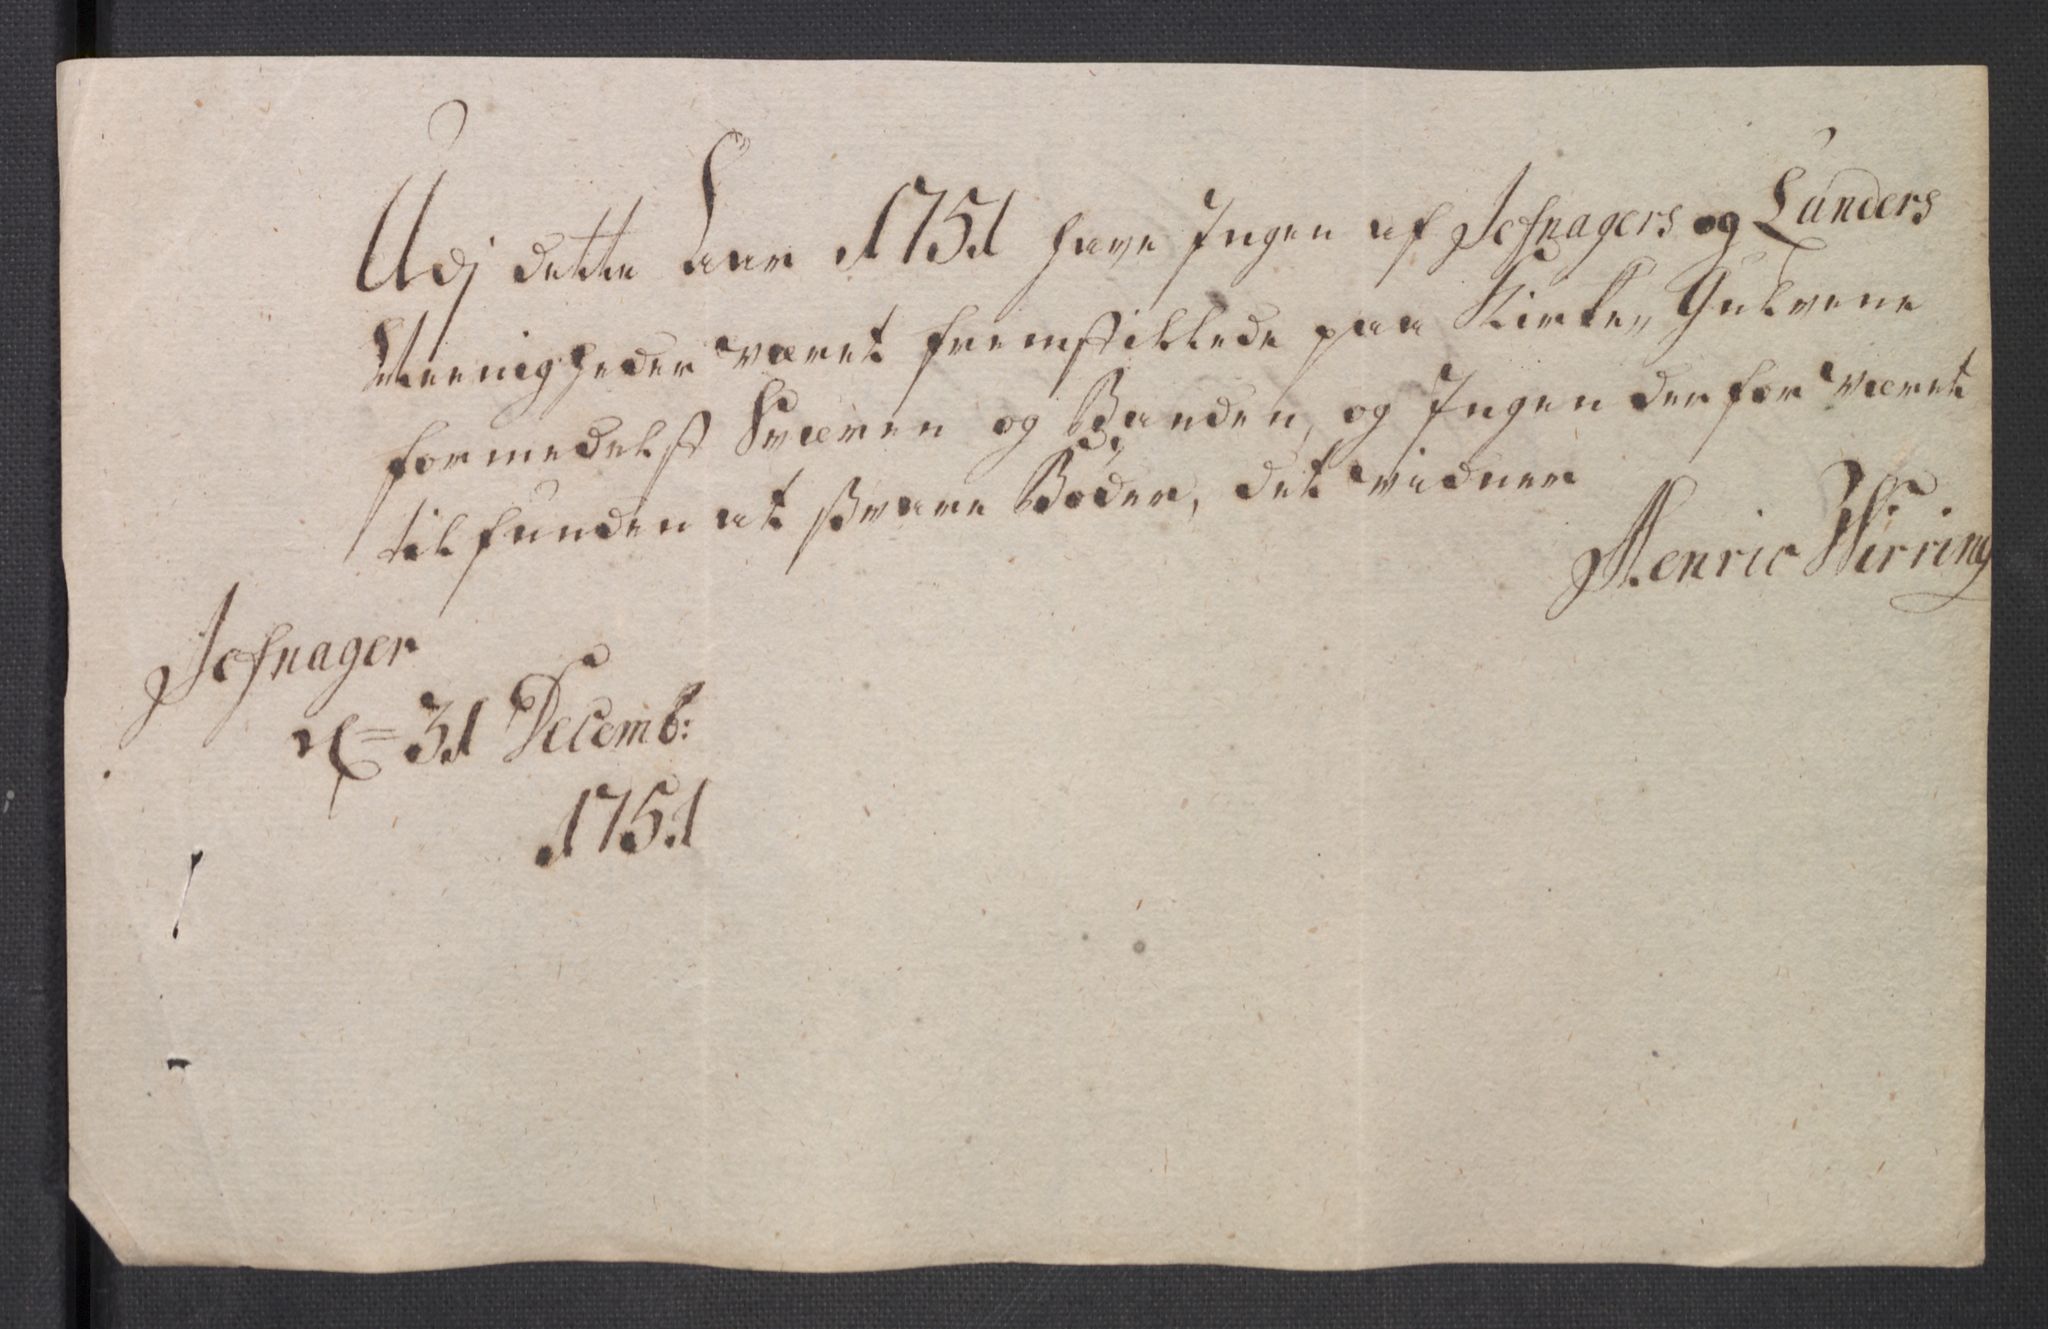 Udj dette Aar 1751 have Ingen af Jofnagers og Lunders
Meenigheder været fremstillede paa Kirke Gulvene
formedelst Sværen og Banden, og Ingen derfor været
tilfunden at svare Bøder, det vidner
Henric Wirring
Jofnager
31 Decemb:
1751